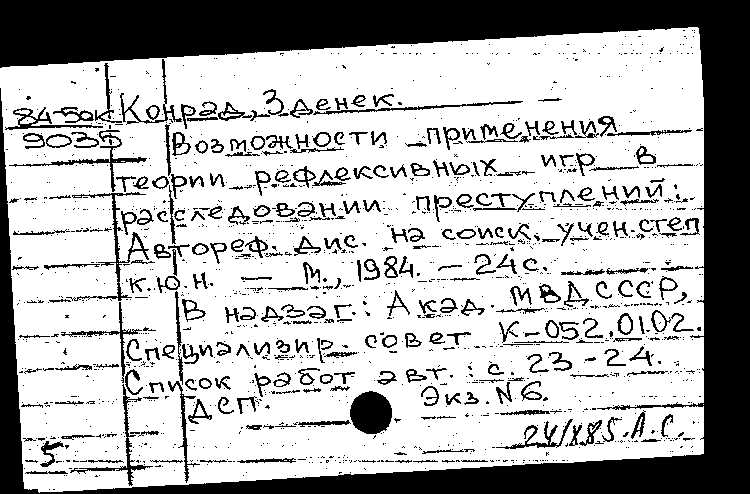 84-5ок Конрад, Зденек.
9035 Возможности применения
теории рефлексивных игр в
расследовании преступлений:
Автореф. дис. на соиск. учен. степ
к.ю.н. — М., 1984. — 24 с.
В надзаг.: Акад. МВД СССР,
Специализир. совет К-052.01.02.
Список работ авт.: с. 23-24.
ДСП. Экз. N6.
А.С.
5